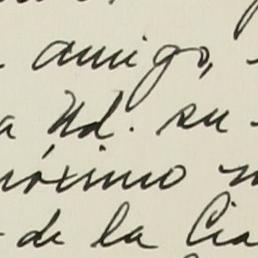 amigo,
a Ud. su
próximo
de la Cia